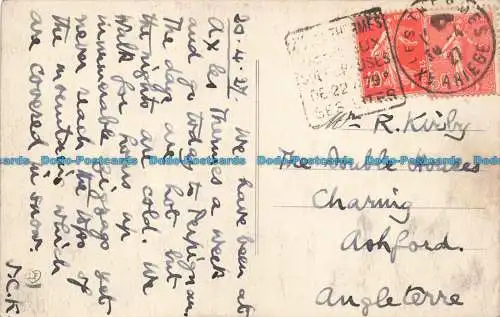 20.4.27. We have been at
Ax les Thermes a week
and go today to Perpignan.
The days are hot but
the nights are cold. We
walk for hours up
innumerable zigzags yet
never reach the tops of
the mountains which
are covered in snow.
J.C.K
SOURCES
DE 22 A 79°
Mr R. Kirby
The Double Houses
Charing
Ashford.
Angleterre
Dodo-Postcards Dodo-Postcards Dodo-Postcards